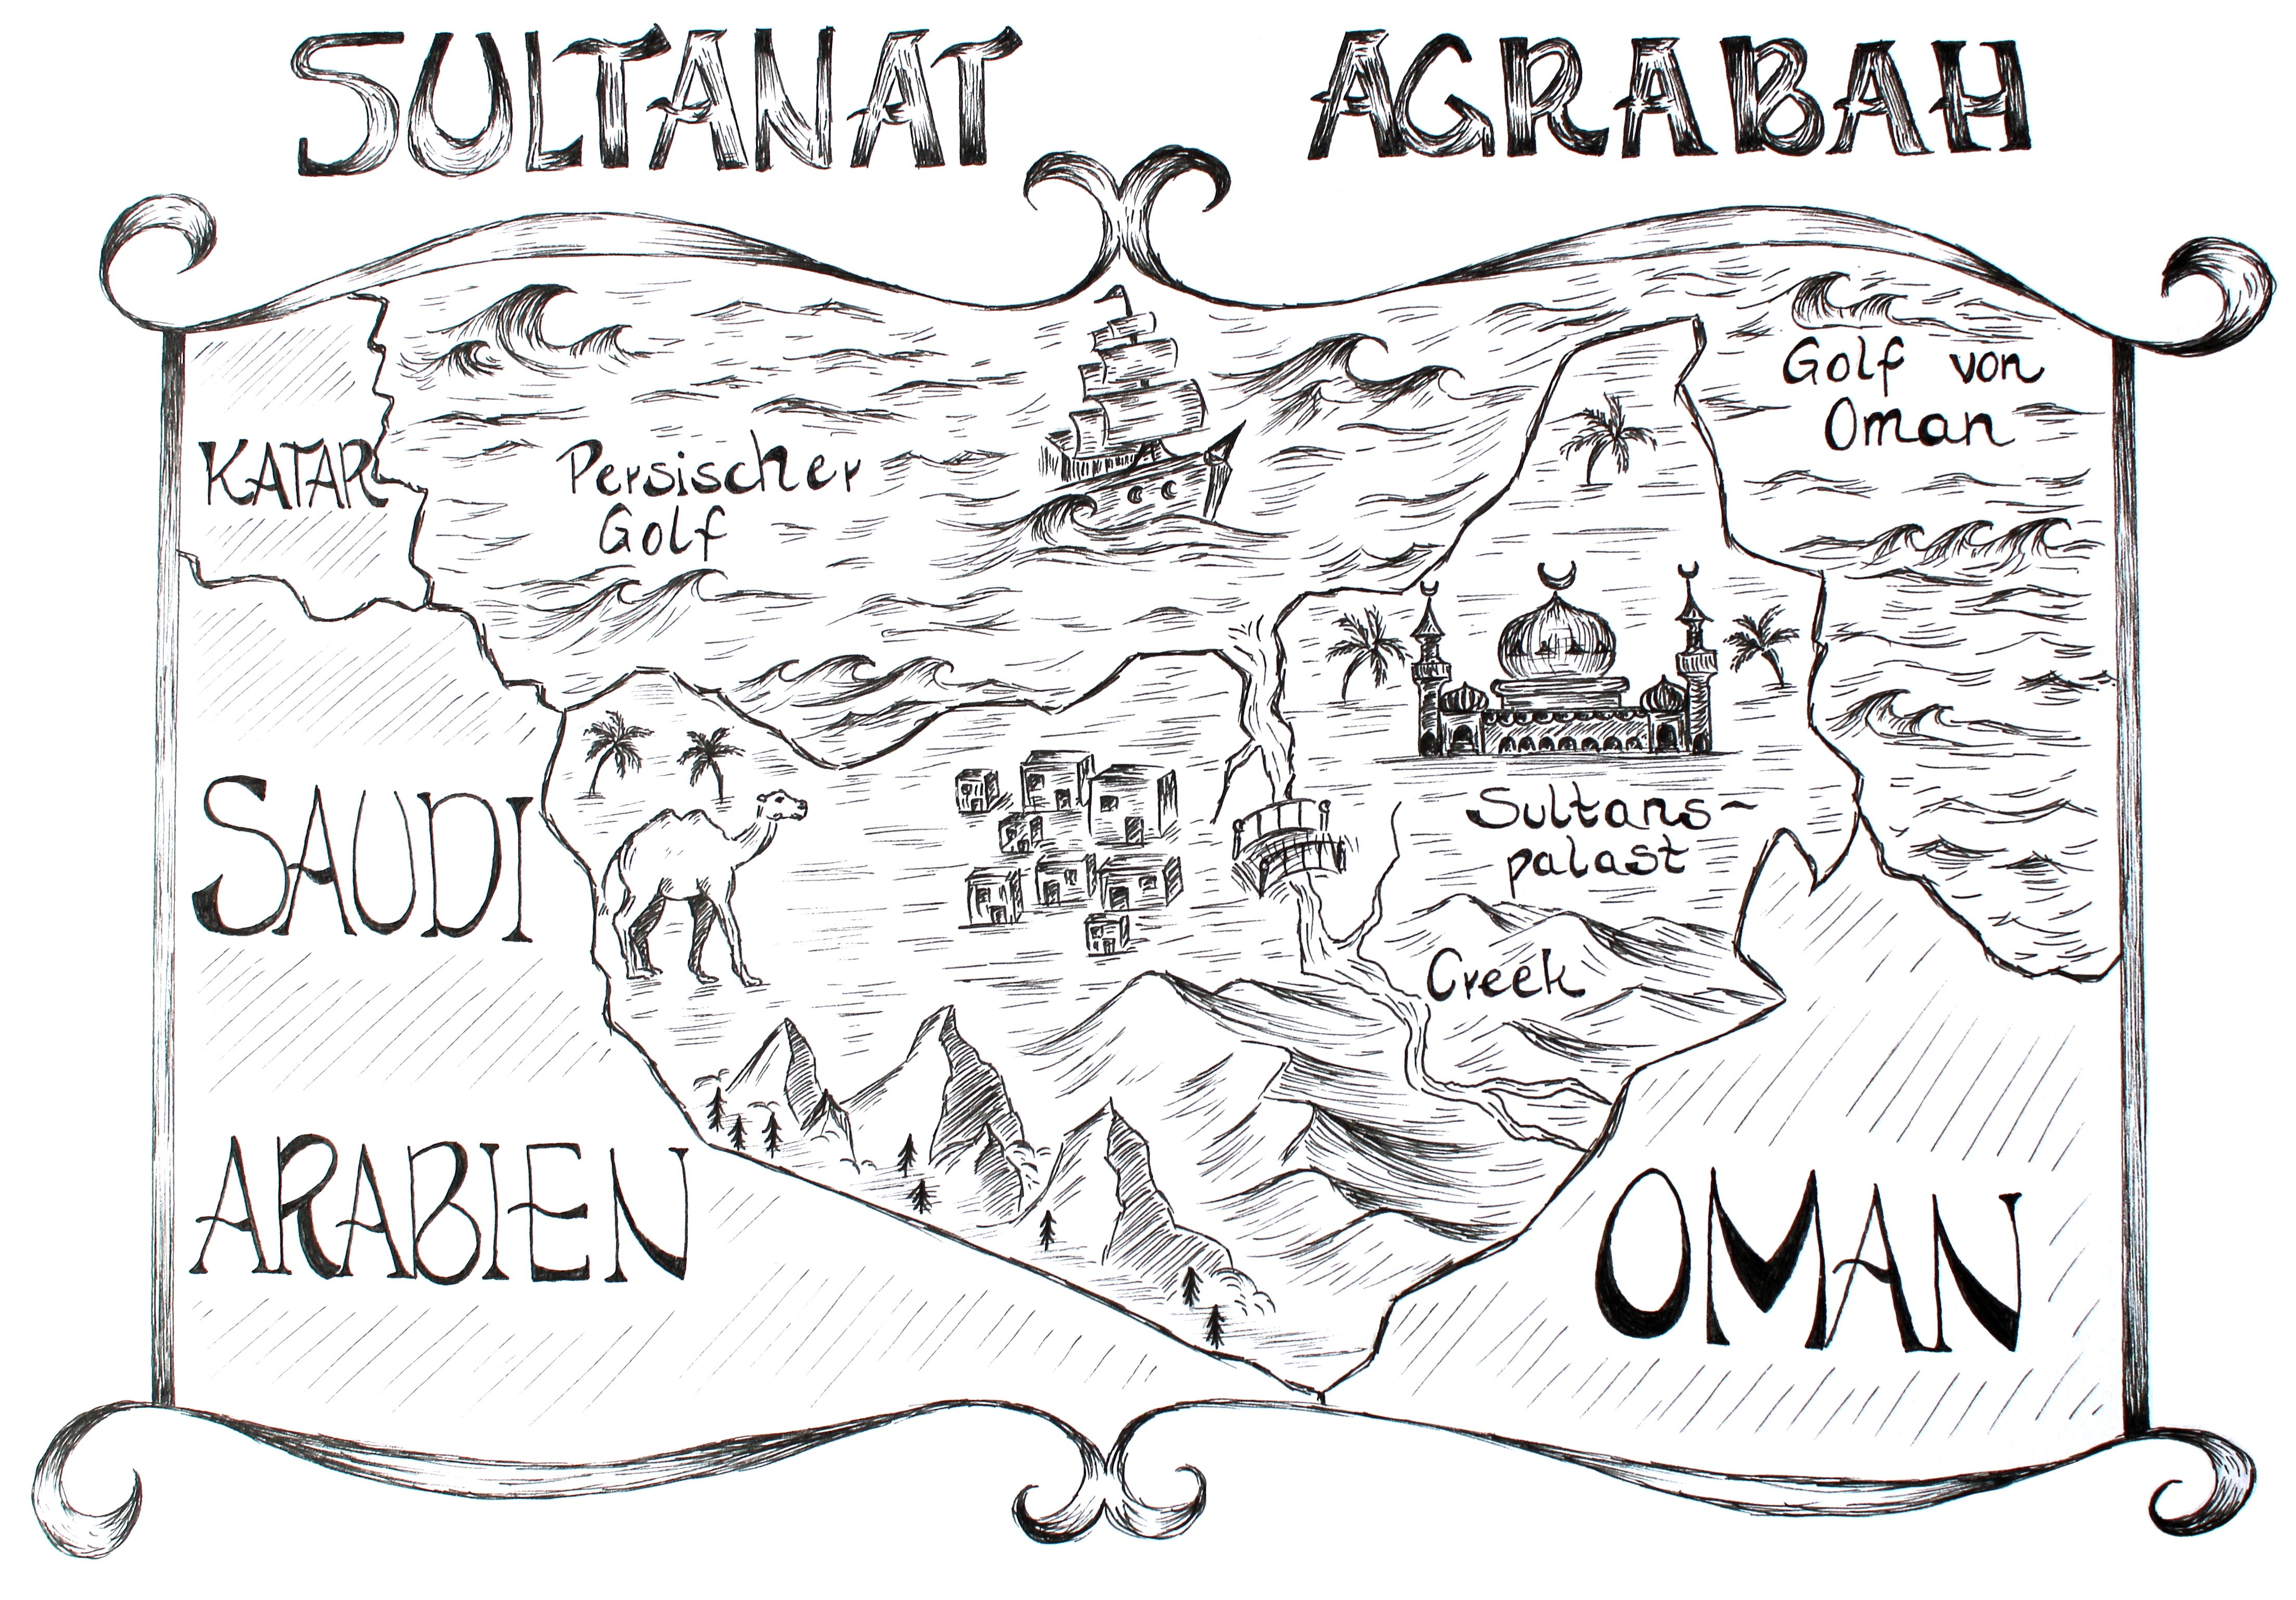 SULTANAT AGRABAH
Golf von
Oman
KATAR
Persischer
Golf
SAUDI
ARABIEN
Sultans-
palast
Creek
OMAN